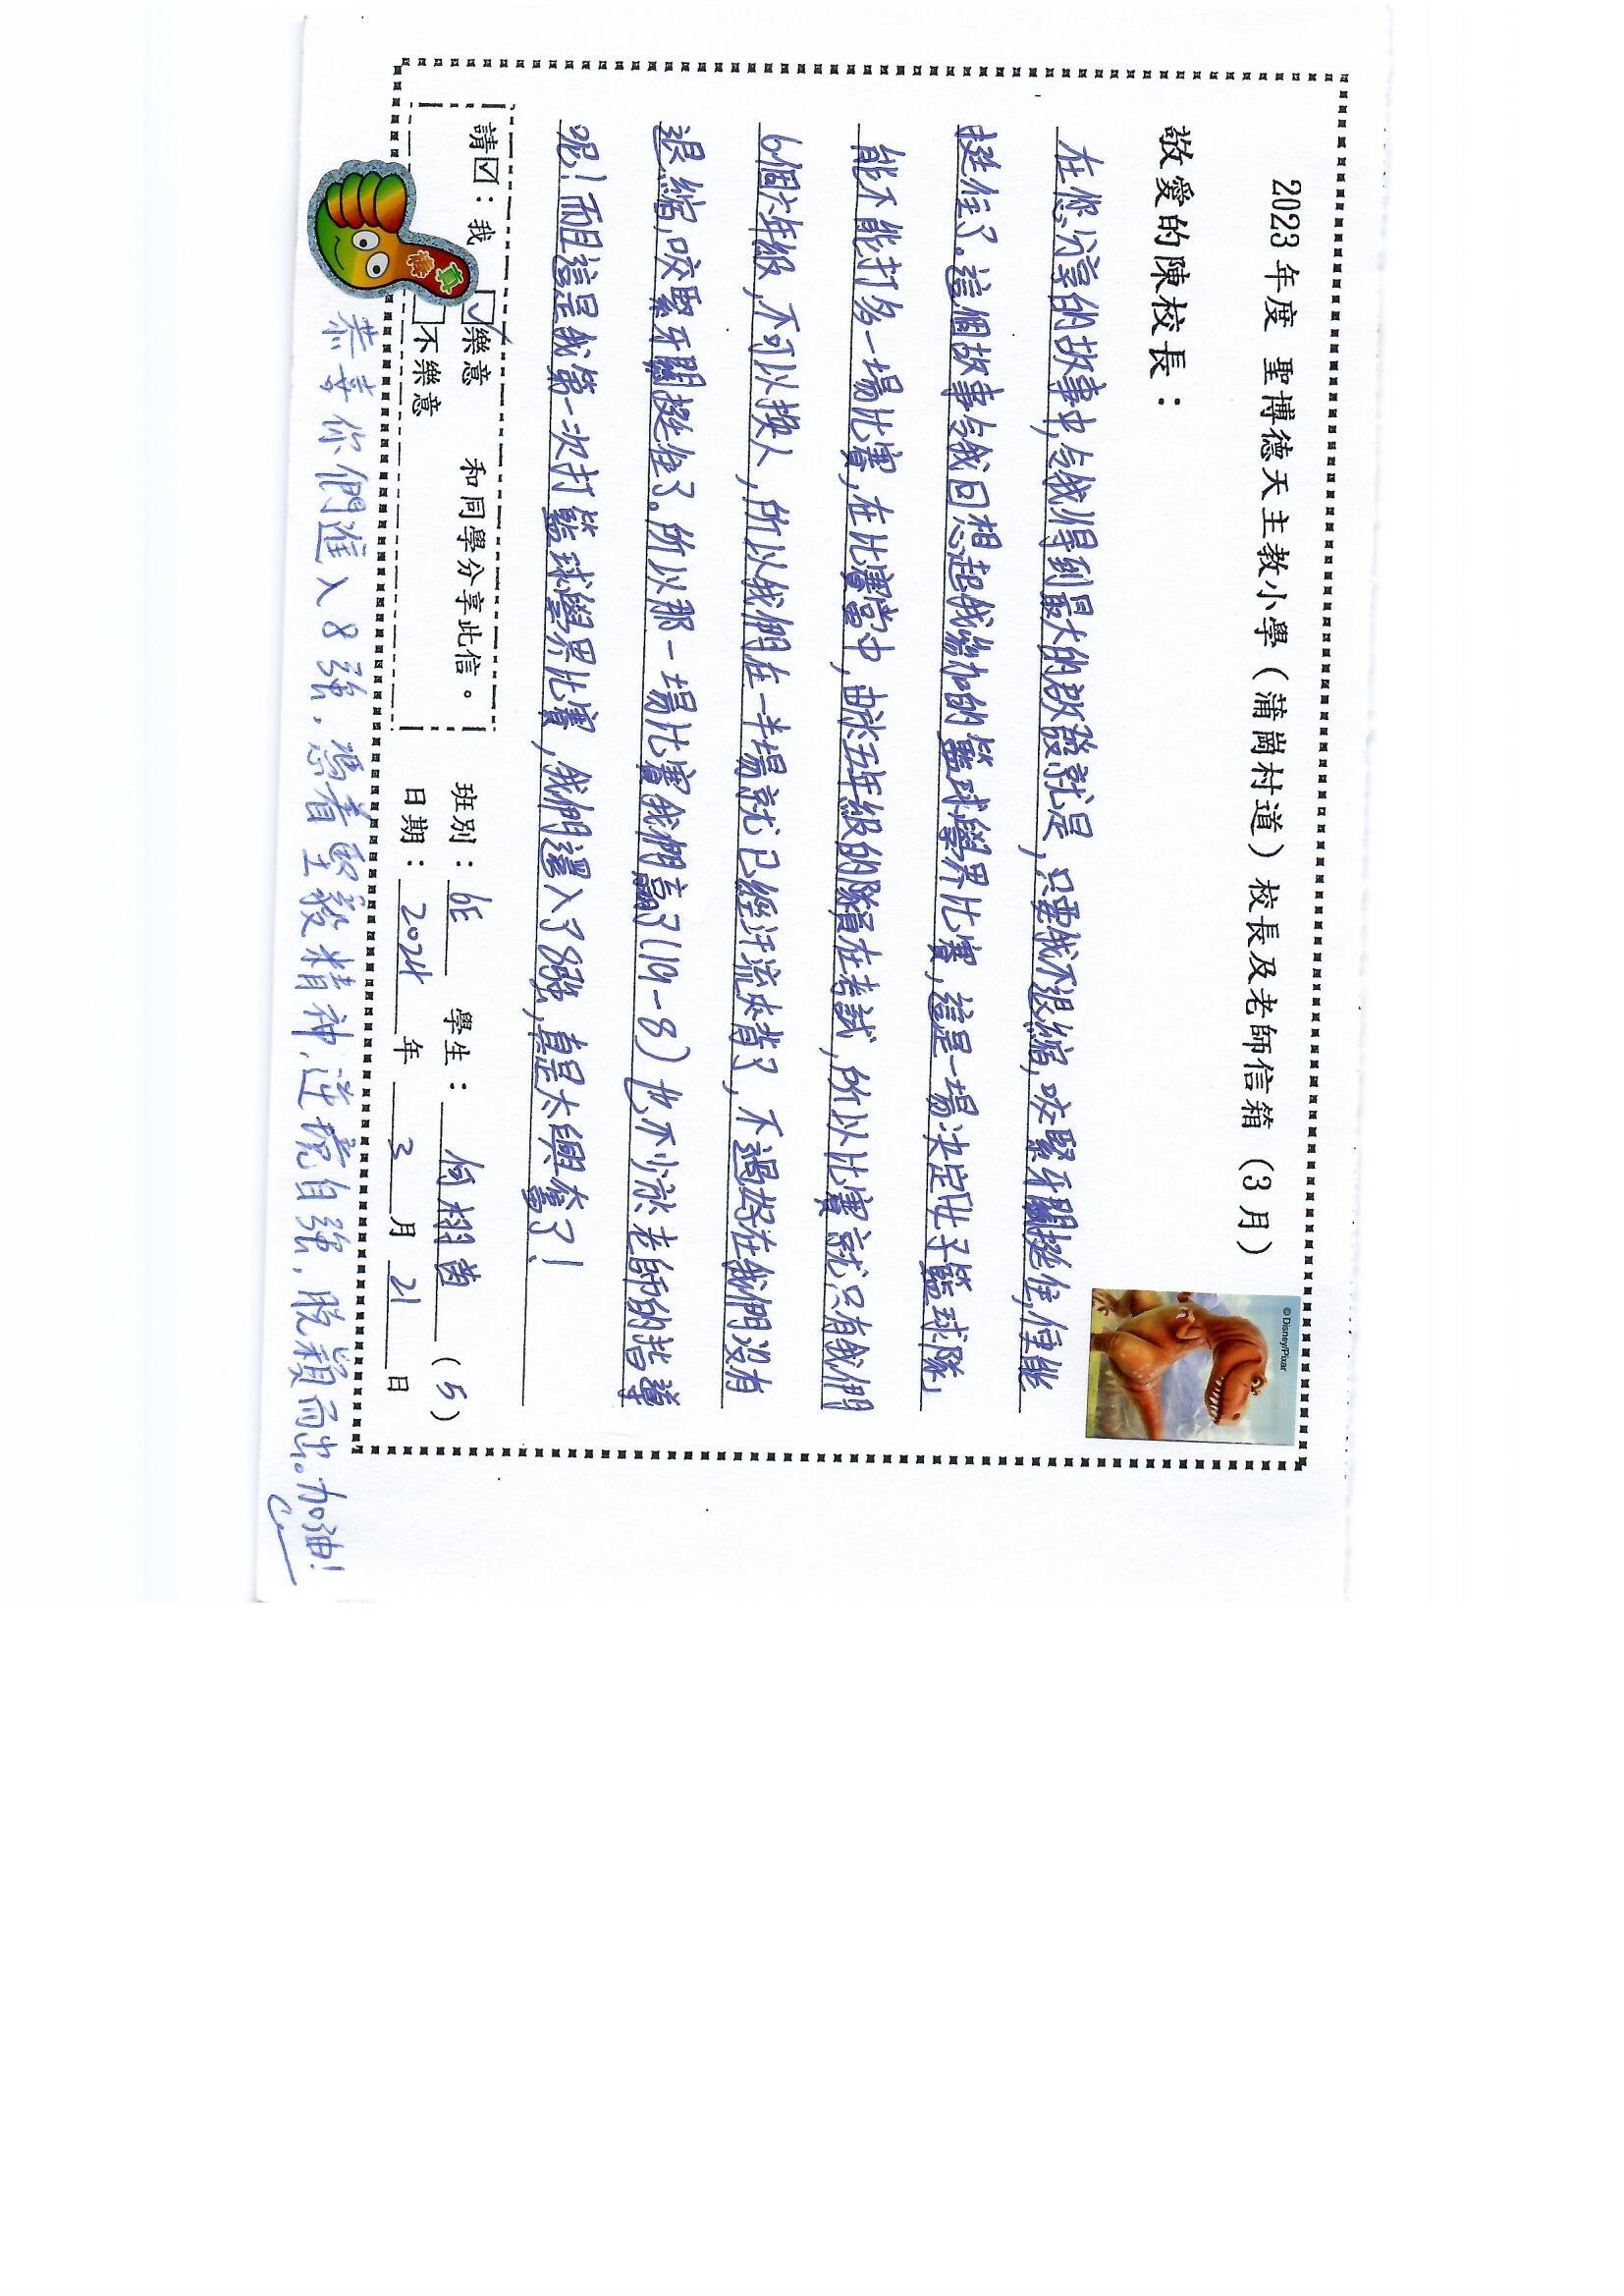 2023年度 聖博德天主教小學（蒲崗村道）校長及老師信箱（3月）
©Disney/Pixar
敬愛的陳校長：
在你分享的故事中，令我得到最大的啟發就是，只要我不退縮，咬緊牙關挺住，便能
挺住了。這個故事令我回想起我參加的籃球學界比賽，這是一場決定女子籃球隊
能不能打多一場比賽，在比賽當中，由於五年級的隊員在考試，所以比賽就只有我們
6個六年級，不可以換人，所以我們在一半場就已經汗流夾背了，不過好在我們沒有
退縮，咬緊牙關挺住了。所以那一場比賽我們贏了(19-8)也不少於老師的指導
呢！而且這是我第一次打籃球學界比賽，我們還入了8強，真是太興奮了！
請☑：我 ☑樂意 和同學分享此信。
□不樂意
班別：6E 學生：何栩茵 (5)
日期：2024年3月21日
恭喜你們進入8強，憑着堅毅精神，逆境自強，脫穎而出。加油！